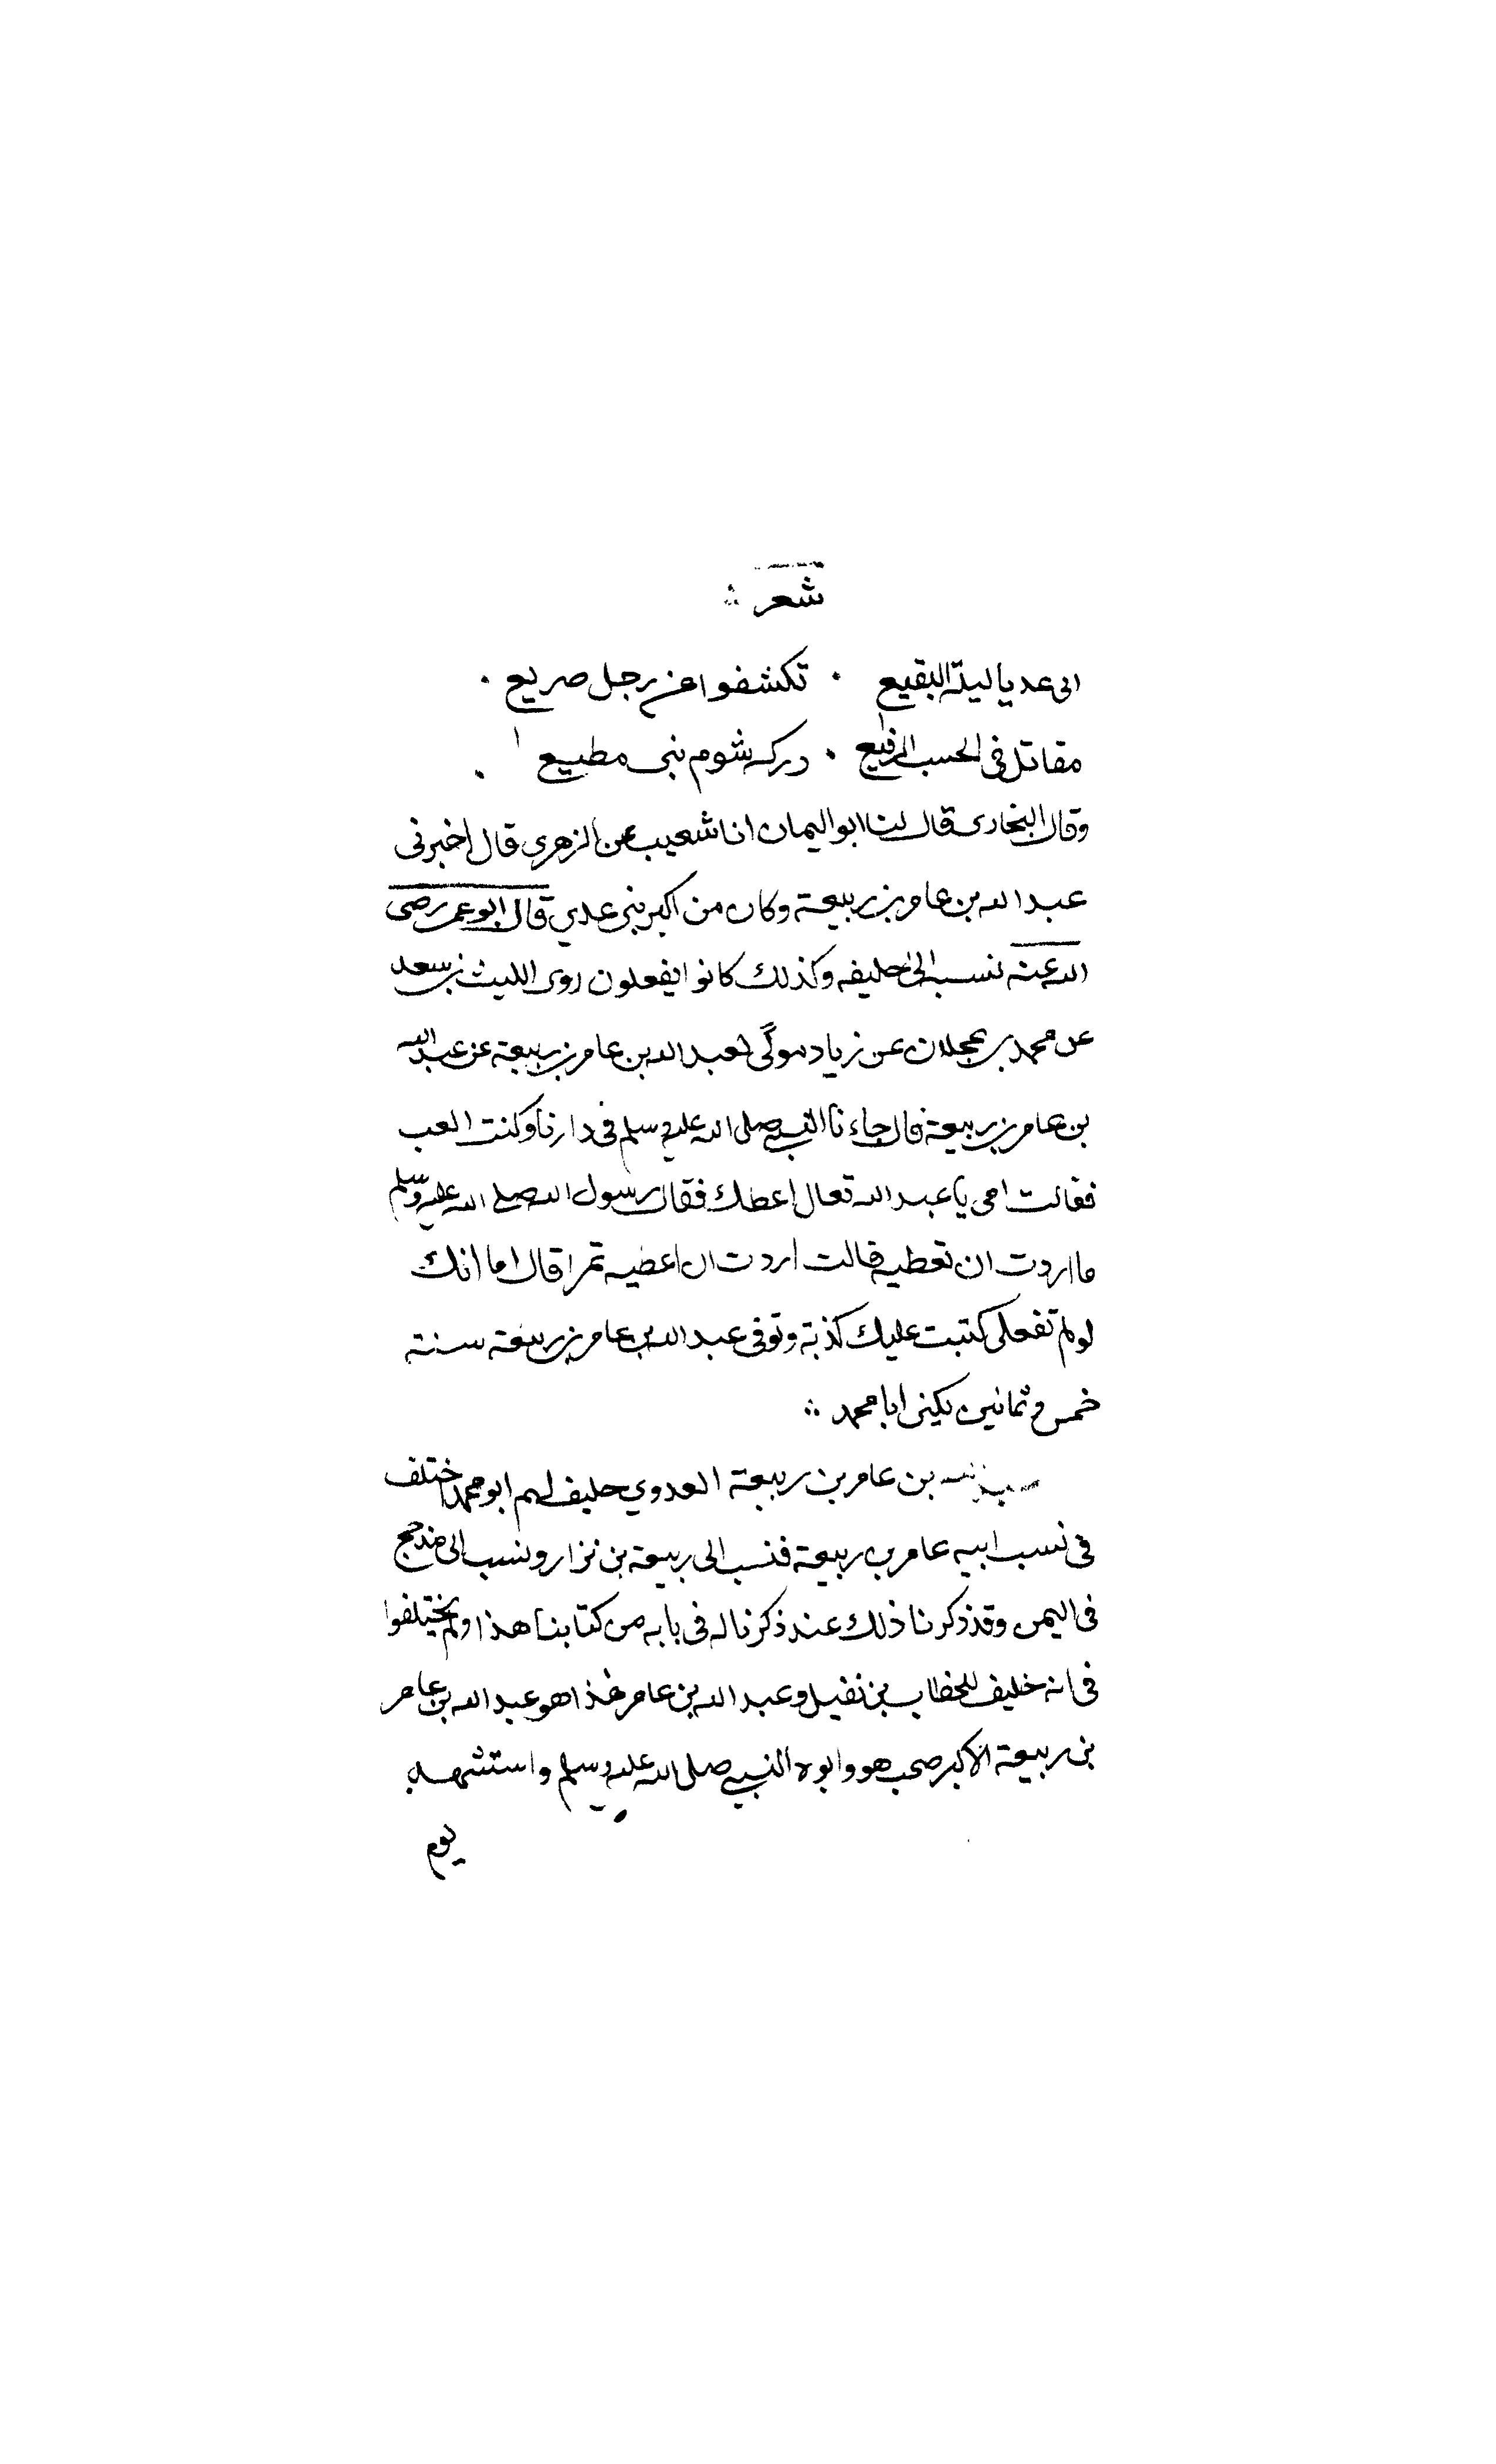 شعر
ابى عديا ليلة البقيع تكشفوا عن رجل صريع
مقاتل فى الحسب الرفيع دركه شوم بنى مطيع
وقال البخارى قال لنا ابو اليمان انا شعيب عن الزهرى قال اخبرنى
عبد الله بن عامر بن ربيعة وكان من اكبر بنى عدي قال ابو عمر رضى
الله عنه نسبه الى حليفه وكذلك كانوا يفعلون روى الليث بن سعد
عن محمد بن عجلان عن زياد مولى لعبد الله بن عامر بن ربيعة عن عبد الله
بن عامر بن ربيعة قال جاءنا النبى صلى الله عليه وسلم فى دارنا وكنت العب
فقالت امى يا عبد الله تعال اعطك فقال رسول الله صلى الله عليه وسلم
ما اردت ان تعطيه قالت اردت ان اعطيه تمرا قال اما انك
لو لم تفعلى كتبت عليك كذبة وتوفى عبد الله بن عامر بن ربيعة سنة
خمس وثمانين يكنى ابا محمد
بن عامر بن ربيعة العدوي حليف لهم ابو محمد اختلف
فى نسب ابيه عامر بن ربيعة فنسب الى ربيعة بن نزار ونسب الى مذحج
فى اليمن وقد ذكرنا ذلك عند ذكرنا له فى بابه من كتابنا هذا ولم يختلفوا
فى انه خليف للخطاب بن نفيل وعبد الله بن عامر هذا هو عبد الله بن عامر
بن ربيعة الاكبر صحب هو وابوه النبى صلى الله عليه وسلم واستشهد
يوم